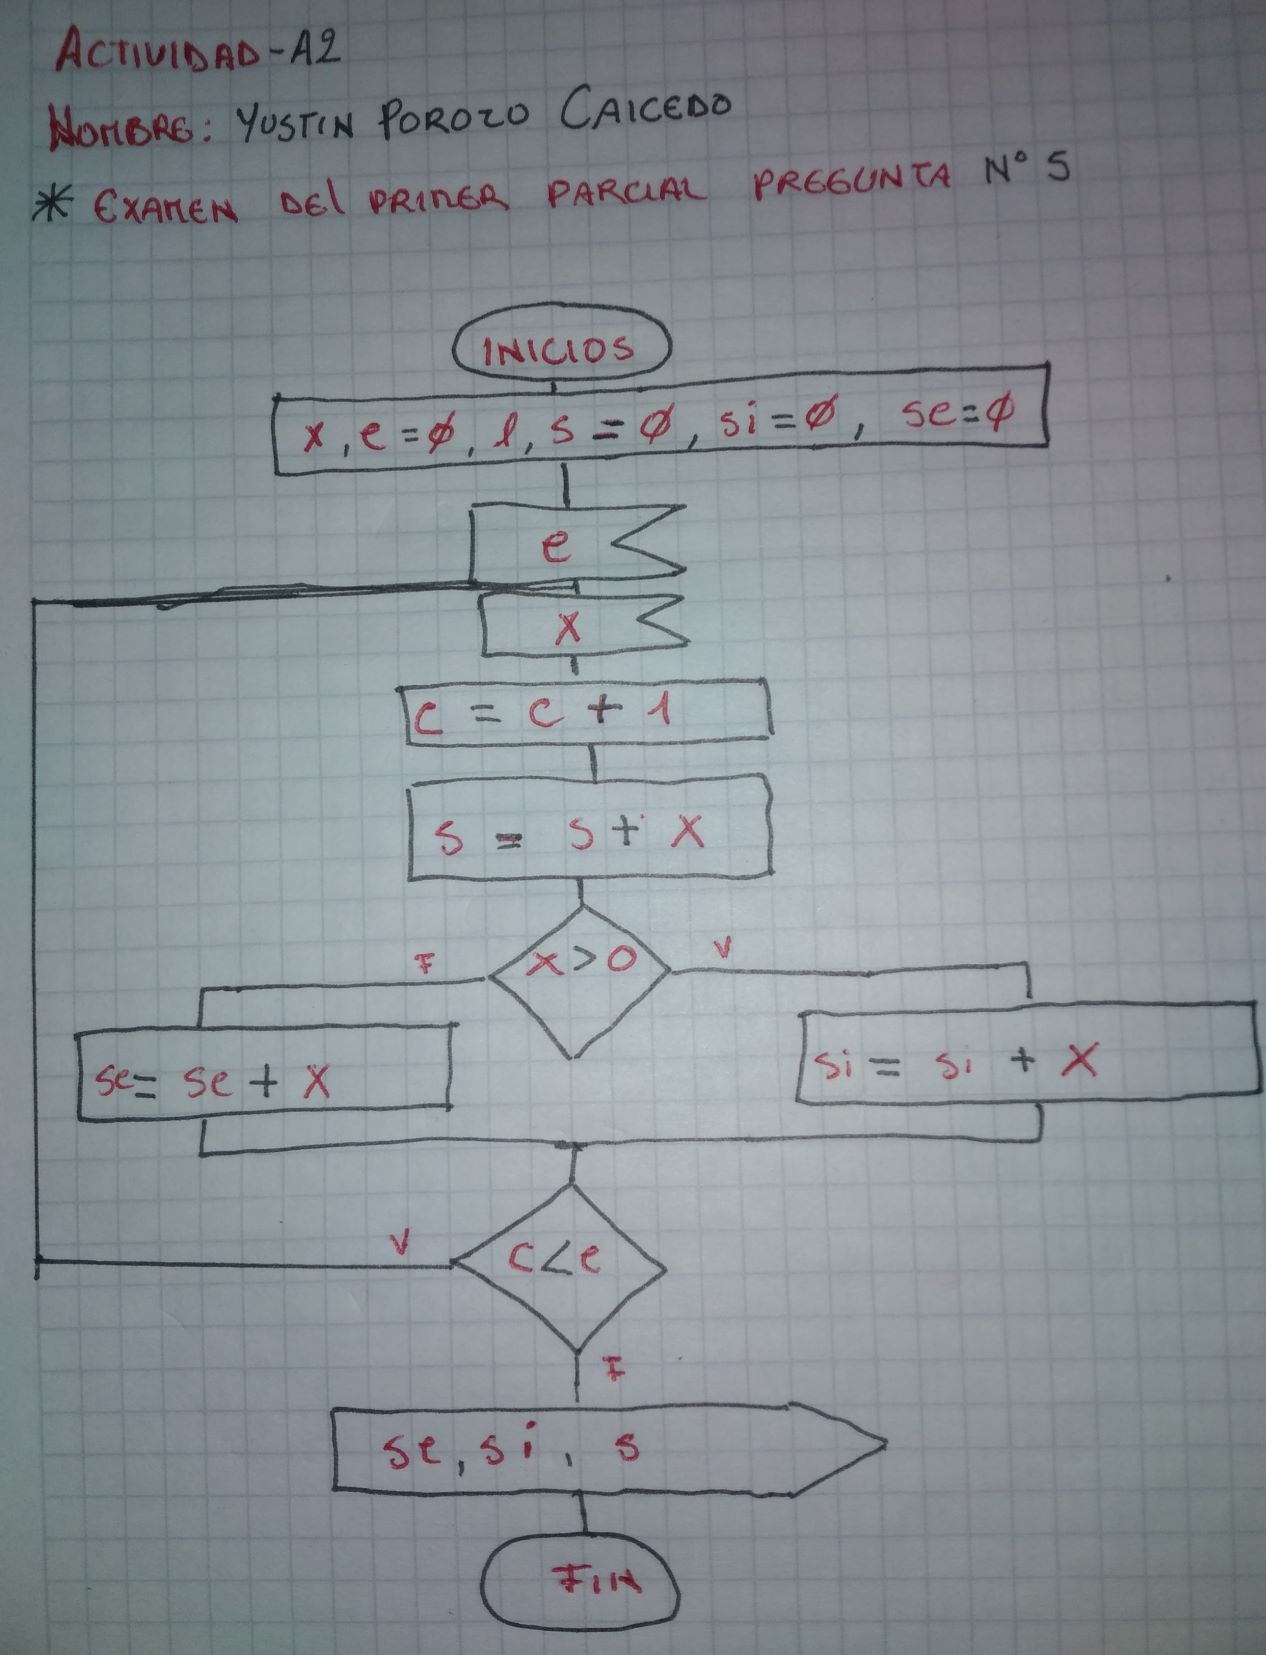 ACTIVIDAD-A2
NOMBRE: YUSTIN POROZO CAICEDO
* EXAMEN DEl PRIMER PARCIAL PREGUNTA N° 5
INICIOS
x, e=ø, l, s=ø, si=ø, se=ø
e
x
c = c + 1
s = s + x
F
x>0
V
se= se + x
si = si + x
V
c<e
F
se, si, s
FIN